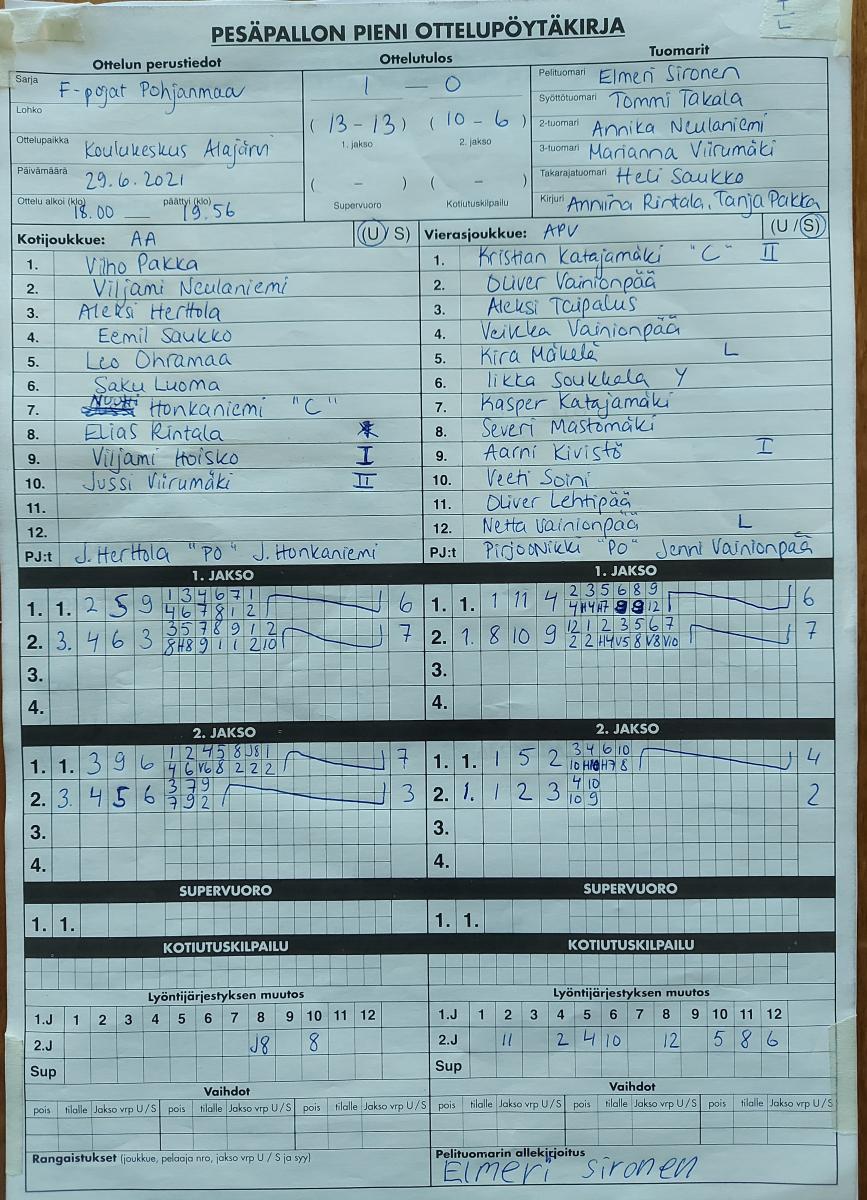 PESÄPALLON PIENI OTTELUPÖYTÄKIRJA
Ottelun perustiedot
Sarja F-pojat Pohjanmaa
Lohko
Ottelupaikka Koulukeskus Alajärvi
Päivämäärä 29.6.2021
Ottelu alkoi (klo) 18.00 — päättyi (klo) 19.56
Ottelutulos
1 — 0
(13-13) (10-6)
1. jakso 2. jakso
( - ) ( - )
Supervuoro Kotiutuskilpailu
Tuomarit
Pelituomari Elmeri Sironen
Syöttötuomari Tommi Takala
2-tuomari Annika Neulaniemi
3-tuomari Marianna Viirumäki
Takarajatuomari Heli Saukko
Kirjuri Anniina Rintala, Tanja Pakka
Kotijoukkue: AA (U/S)
1. Vilho Pakka
2. Viljami Neulaniemi
3. Aleksi Herttola
4. Eemil Saukko
5. Leo Ohramaa
6. Saku Luoma
7. Nuutti Honkaniemi "C"
8. Elias Rintala
9. Viljami Hoisko I
10. Jussi Viirumäki II
11.
12.
PJ:t J. Herttola "PO" J. Honkaniemi
Vierasjoukkue: APV (U/S)
1. Kristian Katajamäki "C" II
2. Oliver Vainionpää
3. Aleksi Taipalus
4. Veikka Vainionpää
5. Kira Mäkelä L
6. Iikka Soukkala Y
7. Kasper Katajamäki
8. Severi Mastomäki
9. Aarni Kivistö I
10. Veeti Soini
11. Oliver Lehtipää
12. Netta Vainionpää L
PJ:t Pirjo Nikki "PO" Jenni Vainionpää
1. JAKSO
1. 1. 2 5 9 1 3 4 6 7 1 6
4 6 7 8 1 2
2. 3. 4 6 3 3 5 7 8 9 1 2 7
8 H8 9 1 1 2 10
3.
4.
1. JAKSO
1. 1. 1 11 4 2 3 5 6 8 9 6
4 H4 H7 9 9 12
2. 1. 8 10 9 12 1 2 3 5 6 7 7
2 2 H4 V5 8 V8 V10
3.
4.
2. JAKSO
1. 1. 3 9 6 1 2 4 5 8 J8 1 7
4 6 V6 8 2 2 2
2. 3. 4 5 6 3 7 9 3
7 9 2
3.
4.
2. JAKSO
1. 1. 1 5 2 3 4 6 10 4
10 H10 H7 8
2. 1. 1 2 3 4 10 2
10 9
3.
4.
SUPERVUORO
1. 1.
SUPERVUORO
1. 1.
KOTIUTUSKILPAILU
KOTIUTUSKILPAILU
Lyöntijärjestyksen muutos
1.J 1 2 3 4 5 6 7 8 9 10 11 12
2.J J8 8
Sup
Lyöntijärjestyksen muutos
1.J 1 2 3 4 5 6 7 8 9 10 11 12
2.J 11 2 4 10 12 5 8 6
Sup
Vaihdot
pois tilalle Jakso vrp U/S pois tilalle Jakso vrp U/S pois tilalle Jakso vrp U/S
Vaihdot
pois tilalle Jakso vrp U/S pois tilalle Jakso vrp U/S pois tilalle Jakso vrp U/S
Rangaistukset (joukkue, pelaaja nro, jakso vrp U/S ja syy)
Pelituomarin allekirjoitus
Elmeri Sironen